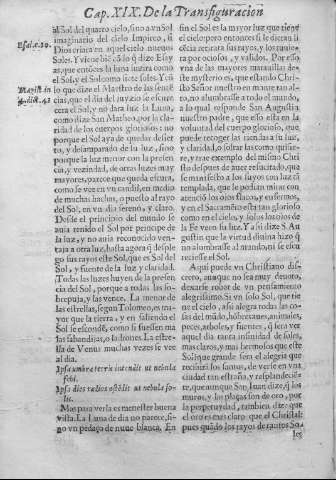 Cap. XIX. De la Transfiguracion
al Sol del quarto cielo, sino a vn Sol
imaginario del cielo Impireo, si
Dios criara en aquel cielo nueuo
Soles. Y vi que biē, a lo q̃ dize Esay
as, que entōces la luna luzira como
el Sol, y el Sol como siete soles. Y to
lo que dize el Maestro de las senten
cias, que el dia del juyzio se escure
cera el Sol, y no dara luz la Luna,
como dize San Matheo, por la cla
ridad de los cuerpos gloriosos: no
porque el Sol aya de quedar desier
to, y desamparado de la luz, sino
porque la luz menor con la presen
cia, y vezindad, de otras luzes muy
mayores, parece que queda escura,
como se vee en vn candil, en medio
de muchas hachas, o puesto al rayo
del Sol, en vn dia sereno, y claro.
Desde el principio del mundo se
auia tenido el Sol por principe de
la luz, y no auia reconocido ven-
taja a otra luz, hasta agora q̃ desple
go sus rayos este Sol, que es Sol del
Sol, y fuente de la luz, y claridad.
Todas las luzes huyen de la presen
cia del Sol, porque a todas las so-
brepuja, y las vence. La menor de
las estrellas, segun Tolomeo, es ma
yor que la tierra, y en saliendo el
Sol se escondē, como si fuessen ma
las sabandijas, o ladrones. La estre-
lla de Venus muchas vezes se vee
al dia.
Ipsa umbra terris
Ipsa dies radios
Mas para verla es menester buena
vista. La Luna de dia no parece, si-
no vn pedaço de nuue blanca. En
fin el Sol es la mayor luz que tiene
el cielo: pero entonces si le dieran li
cēcia retirara sus rayos, y los tuuie-
ra por ociosos, y validos. Por esso
vna de las mayores marauillas des-
te mysterio es, que estando Christo
Señor nuestro en monte tan al-
to, no alumbrasse a todo el mundo,
a lo qual responde San Augustin
nuestro padre, que esso esta en la
voluntad del cuerpo glorioso, que
puede recoger las riendas a la luz,
de claridad, o soltar las como quisie-
re, y trae exemplo del mismo Chri
sto despues de auer resucitado, que
se manifesto a los suyos con luz tā
templada, que le podian mirar con
atenciō los ojos flacos, y enfermos,
y en el Sacramēto esta tan glorioso
como en el cielo, y solos los ojos de
la Fe veen su luz. Y assi dize S. Au
gustin que la virtud diuina hizo q̃
no alumbrasse al mundo, ni se escu
reciesse el Sol.
Aqui puede vn Christiano dis-
creto, aunque no sea muy deuoto,
dexarse robar de vn pensamiento
alegrissimo. Si vn solo Sol, que tie
ne el cielo, assi alegra todas las co-
sas del mūdo, hōbres, aues, animales,
peces, arboles, y fuentes, q̃ sera ver
aquel dia tanta infinidad de soles,
mas claros, y mas hermosos que este
Sol! que grande sera el alegria que
recibirā los santos, de verse en vna
ciudad tan estraña, y resplandeciē-
te, que aunque San Juan dize, q̃ los
muros, y las plaças son de oro, por
la perpetuydad, tambien dize que
el oro es mas claro que el Christal:
pues quādo los rayos de tantos So
les